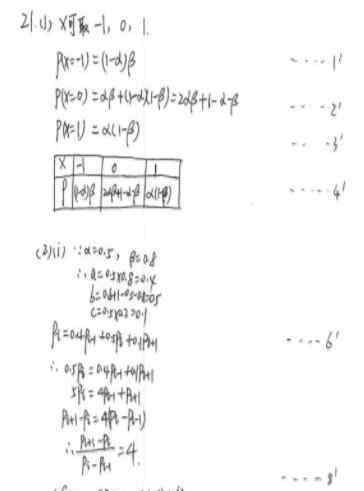 21.(1) X可取 -1, 0, 1.
P(X=-1)=(1-α)β ····1'
P(X=0)=αβ+(1-α)(1-β)=2αβ+1-α-β ····2'
P(X=1)=α(1-β) ····3'
X -1 0 1
P (1-α)β 2αβ+1-α-β α(1-β) ····4'
(2)(i) ∵α=0.5, β=0.8
∴a=0.5×0.8=0.4
b=0.8+1-0.5-0.8=0.5
c=0.5×0.2=0.1
Pi=0.4Pi-1+0.5Pi+0.1Pi+1 ····6'
∴0.5Pi=0.4Pi-1+0.1Pi+1
5Pi=4Pi-1+Pi+1
Pi+1-Pi=4(Pi-Pi-1)
∴(Pi+1-Pi)/(Pi-Pi-1)=4. ····8'